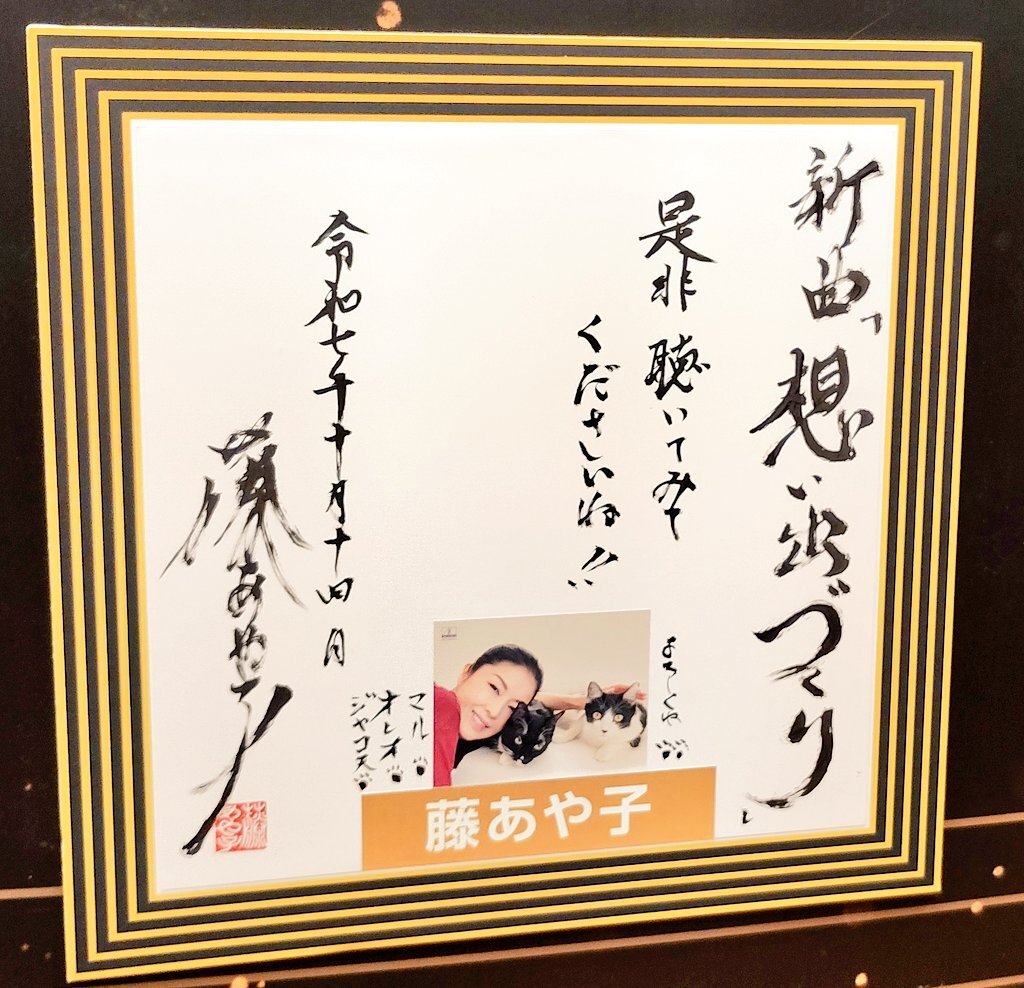 新曲「想い出づくり」
是非聴いてみて
くださいね!!
よろしくね
マル
オレオ
ジャコ天
令和七年十月十四日
藤あや子
藤あや子